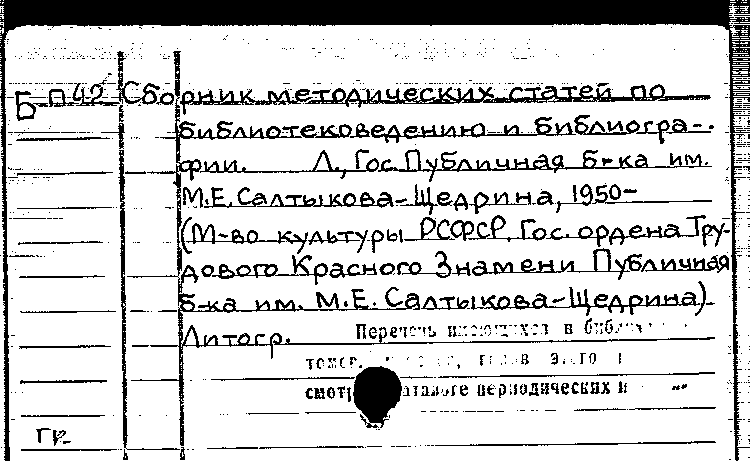 Б П49 Сборник методических статей по
библиотековедению и библиогра-
фии. Л., Гос. Публичная б-ка им.
М.Е. Салтыкова-Щедрина, 1950-
(М-во культуры РСФСР. Гос. ордена Тру-
дового Красного Знамени Публичная
б-ка им. М.Е. Салтыкова-Щедрина)
Литогр.
Перечень имеющихся в
смотр каталоге периодических и